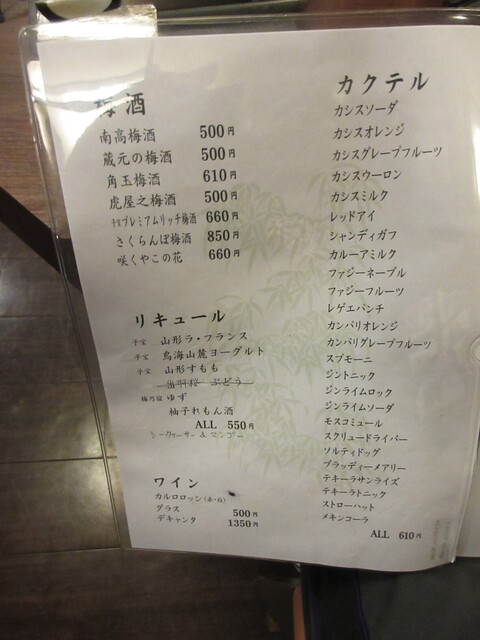 梅酒
南高梅酒 500円
蔵元の梅酒 500円
角玉梅酒 610円
虎屋之梅酒 500円
子宝プレミアムリッチ梅酒 660円
さくらんぼ梅酒 850円
咲くやこの花 660円
リキュール
子宝 山形ラ・フランス
子宝 鳥海山麓ヨーグルト
子宝 山形すもも
出羽桜 ぶどう
梅乃宿 ゆず
柚子れもん酒
ALL 550円
シークヮーサー & マンゴー
ワイン
カルロロッシ(赤・白)
グラス 500円
デキャンタ 1350円
カクテル
カシスソーダ
カシスオレンジ
カシスグレープフルーツ
カシスウーロン
カシスミルク
レッドアイ
シャンディガフ
カルーアミルク
ファジーネーブル
ファジーフルーツ
レゲエパンチ
カンパリオレンジ
カンパリグレープフルーツ
スプモーニ
ジントニック
ジンライムロック
ジンライムソーダ
モスコミュール
スクリュードライバー
ソルティドッグ
ブラッディーメアリー
テキーラサンライズ
テキーラトニック
ストローハット
メキンコーラ
ALL 610円